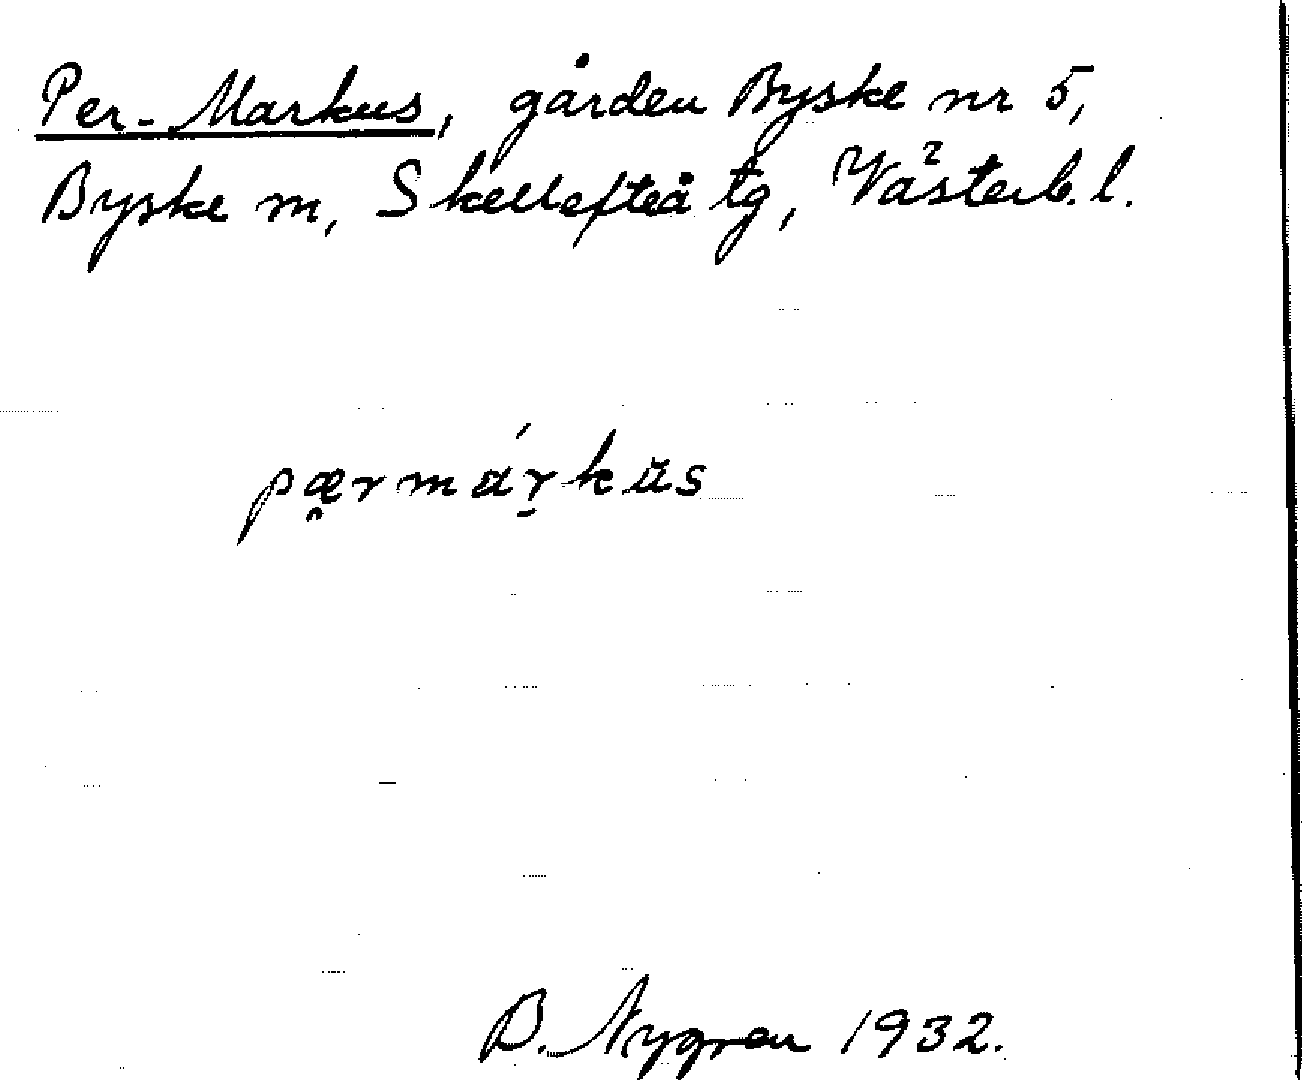 Per-Markus, gården Byske nr 5,
Byske m, Skellefteå tg, Västerb. l.
pærmárkŭs
B. Nygren 1932.